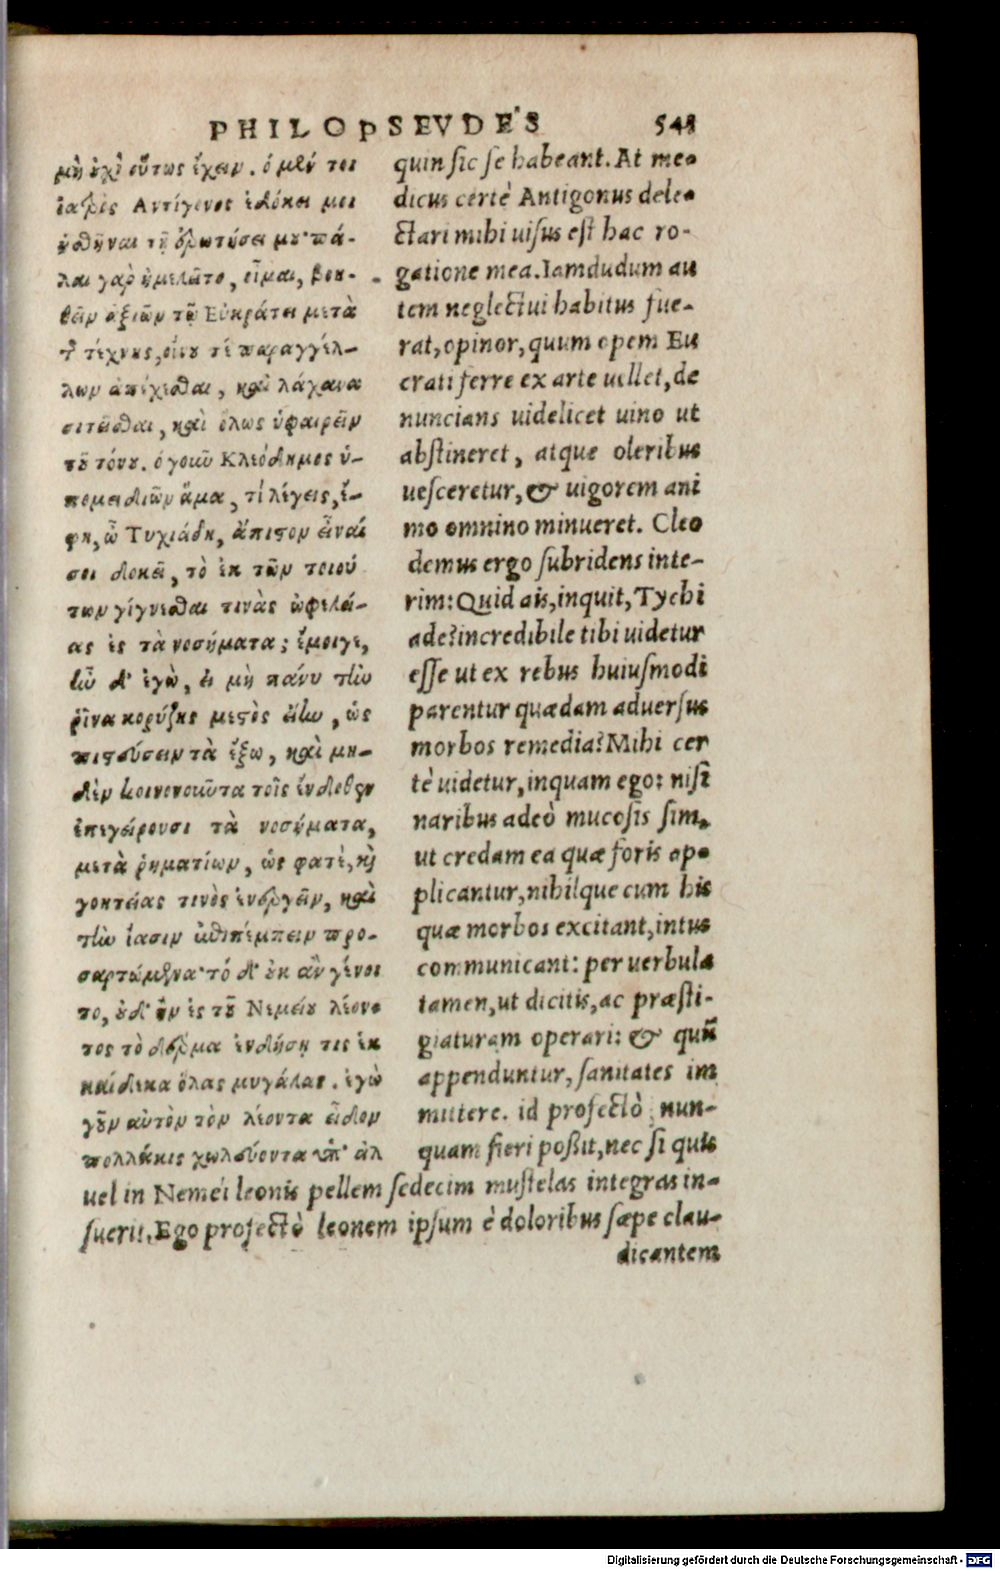 PHILOPSEVDES
μὴ οὐχὶ οὕτως ἔχειν. ὁ μέν τοι
ἰατρὸς Ἀντίγονος ἐδόκει μοι
ἡσθῆναι τῇ ἐρωτήσει μου· πά-
λαι γὰρ ἠμελεῖτο, οἶμαι, βοη-
θεῖν ἀξιῶν τῷ Εὐκράτει μετὰ
τῆς τέχνης, οἴνου τε παραγγέλ-
λων ἀπέχεσθαι, καὶ λάχανα
σιτεῖσθαι, καὶ ὅλως ὑφαιρεῖν
τοῦ τόνου. ὁ γοῦν Κλεόδημος ὑ-
πομειδιῶν ἅμα, τί λέγεις, ἔ-
φη, ὦ Τυχιάδη, ἄπιστον εἶναί
σοι δοκεῖ, τὸ ἐκ τῶν τοιού
των γίγνεσθαι τινὰς ὠφελεί-
ας ἐς τὰ νοσήματα; ἔμοιγε,
ἦν δ' ἐγὼ, εἰ μὴ πάνυ τὴν
ῥῖνα κορύζης μεστὸς εἴην, ὡς
πιστεύσειν τὰ ἔξω, καὶ μη-
δὲν κοινωνοῦντα τοῖς ἔνδοθεν
ἐπεγείρουσι τὰ νοσήματα,
μετὰ ῥηματίων, ὥς φατὲ, καὶ
γοητείας τινὸς ἐνεργεῖν, καὶ
τὴν ἴασιν ἐπιπέμπειν προ-
σαρτώμενα· τό δ' οὐκ ἂν γένοι
το, οὐδ' ἢν ἐς τοῦ Νεμείου λέον
τος τὸ δέρμα ἐνδήσῃ τις ἑκ
καίδεκα ὅλας μυγάλας. ἐγὼ
γοῦν αὐτὸν τὸν λέοντα εἶδον
πολλάκις χωλεύοντα ὑπ' ἀλ
quin sic se habeant. At me-
dicus certè Antigonus dele-
ctari mihi uisus est hac ro-
gatione mea. Iamdudum au
tem neglectui habitus fue-
rat, opinor, quum opem Eu
crati ferre ex arte uellet, de
nuncians uidelicet uino ut
abstineret, atque oleribus
uesceretur, & uigorem ani
mo omnino minueret. Cleo
demus ergo subridens inte-
rim: Quid ais, inquit, Tychi
ade? incredibile tibi uidetur
esse ut ex rebus huiusmodi
parentur quædam aduersus
morbos remedia? Mihi cer
tè uidetur, inquam ego: nisi
naribus adeò mucosis sim,
ut credam ea quæ foris ap-
plicantur, nihilque cum his
quæ morbos excitant, intus
communicant: per uerbula
tamen, ut dicitis, ac præsti-
giaturam operari: & quũ
appenduntur, sanitates im
mittere. id profectò nun-
quam fieri poßit, nec si quis
uel in Nemei leonis pellem sedecim mustelas integras in-
suerit. Ego profectò leonem ipsum è doloribus sæpe clau-
dicantem
Digitalisierung gefördert durch die Deutsche Forschungsgemeinschaft - DFG